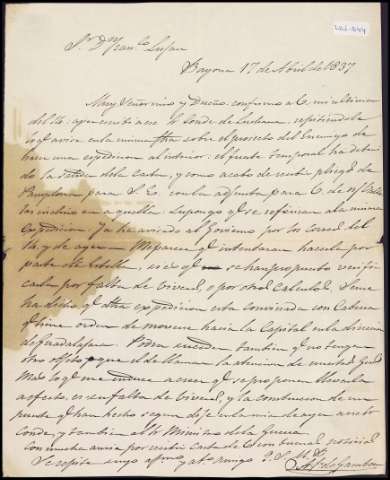 Sr. Dn. Franco. Lujan
Bayona 17 de Abril de 1837
Muy Señor mio y Dueño: confirmo a V. mi ultima
del 14. ayer escribi a el Conde de Luchana repitiendole
lo qe. avisé en la misma fha sobre el proyecto del Enemigo de
hacer una expedicion al interior: el fuerte temporal ha deteni
do la salida de la carta, y como acabo de recibir pliegos de
Pamplona para S. E. con la adjunta para V. de
los incluio en aquella. Supongo qe. se refieran a la misma
Expedicion. Ya ha avisado al Gobierno por los Correos del
14 y de ayer. Me parece qe. intentaran hacerla por
parte de Estella, si es qe. no se han propuesto recibir
carta por falta de viveres, o por otros calculos. Se me
ha dicho qe. otra expedicion esta convinada con Cabrera
qe. tiene orden de moverse hacia la Capital en la direccion
de Guadalajara. Podra suceder tambien qe. no tengan
otro objeto qe. el de llamar la atencion de nuestros Grales.
Mas lo qe. me induce a creer qe. se proponen llevarla
a efecto, es su falta de viveres, y la construccion de un
puente qe. han hecho segun dije en la mia de ayer a este
Conde, y tambien al Sr. Ministro de la Guerra.
Con mucha ansia por recibir carta de V. con buenas noticias
Se repite suyo afmo. y ato. amigo Q. S. M. B.
de Gamboa